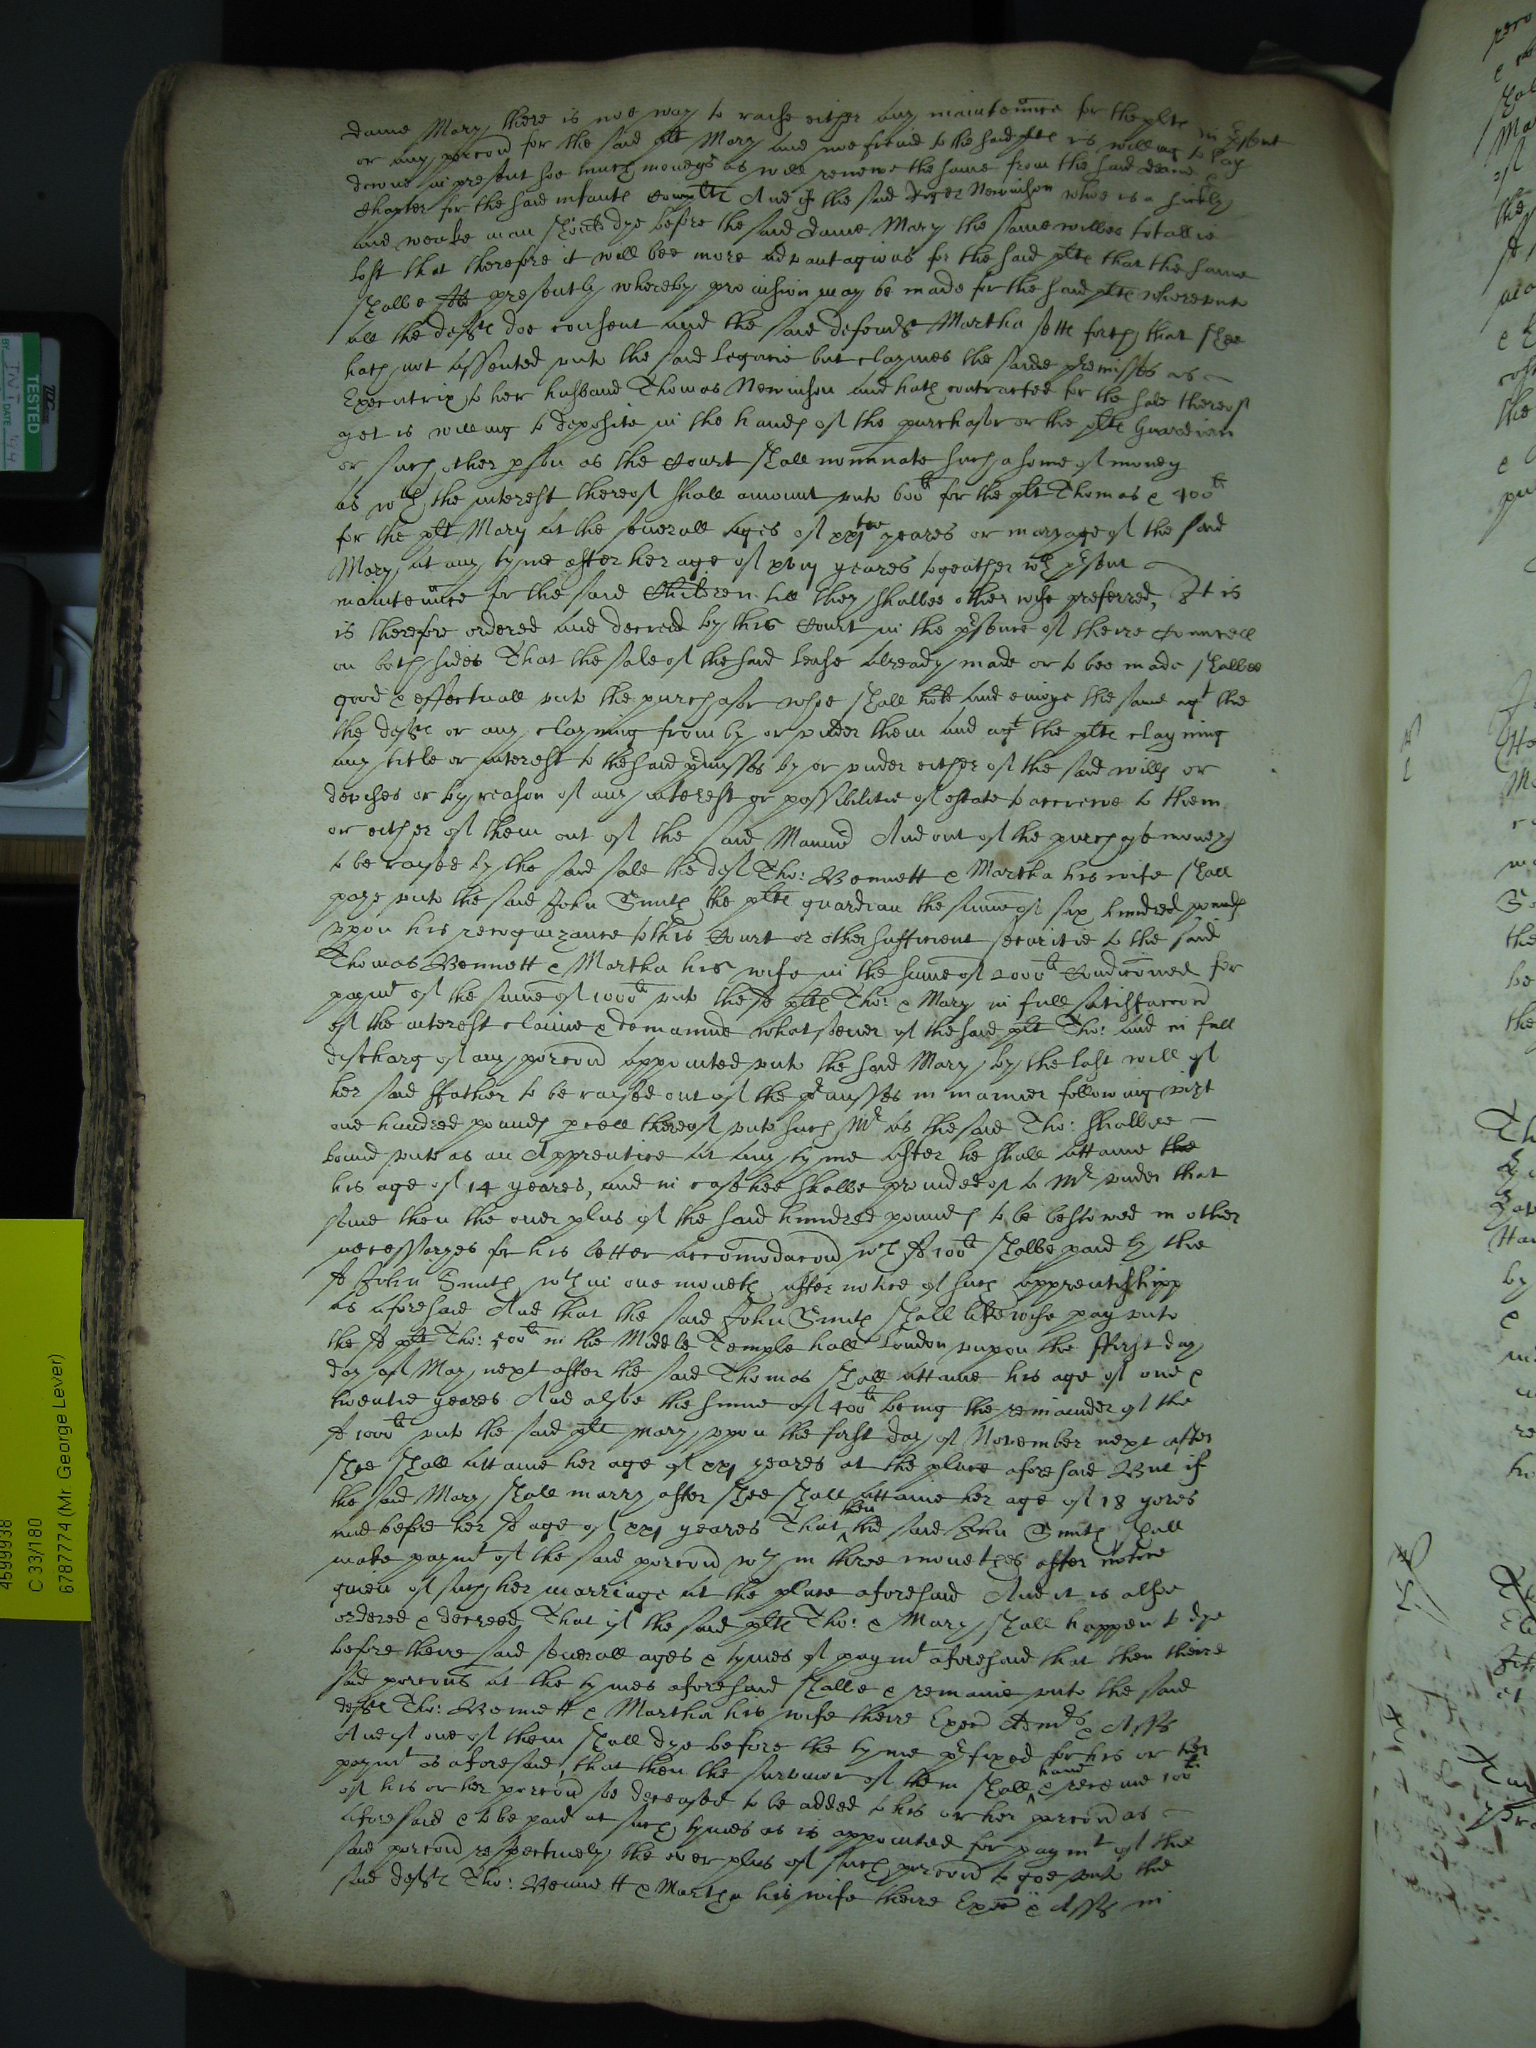 Dame Mary there is noe way to raise either any maintennce for the plte in p'sent
or any porcon for the said plt Mary and noe freind to the said plte is willing to lay
downe in present soe much moneys as will renewe the same from the said Deane &
Chapter for the said infante Complte And if the said Roger Nevinson whoe is a sickly
and weake man should dye before the said Dame Mary the same willbee totallie
lost that therefore it will bee more advantagious for the said plte that the same
shalbe presently whereby provision may be made for the said plte wherevnto
all the defte doe consent and the said defend Martha sett forth that shee
hath not assented vnto the said Legacie but claymes the saide premisses as
Executrix to her husband Thomas Nevinson and hath contracted for the sale thereof
yet is willing to deposite in the hands of the purchasor or the plte Guardian
or such other pson as the Court shall nominate such a some of money
as wth the interest thereof shall amount vnto 600li for the plt Thomas & 400li
for the plt Mary at the seuerall ages of xxjtie yeares or maryage of the said
Mary at any tyme after her age of xviij yeares togeather wth p'sent
maintennce for the said Children till they shalbee otherwise preferred, It is
is therefore ordered and decreed by this Court in the p'sence of theire Councell
on both sides That the sale of the said lease already made or to bee made shalbee
good & effectuall vnto the purchasor whoe shall hold and enioye the same agt the
the defte or any clayming from by or vnder them and agt the plte clayming
any title or interest to the said p'misses by or vnder either of the said wills or
devises or by reason of any interest or possibilitie of estate to accrewe to them
or either of them out of the said Mannor And out of the purchase money
to be raysed by the said sale the deft Tho: Bennett & Martha his wife shall
paye vnto the said John Smith the plte guardian the summe of six hundred pounds
vpon his recognizance to this Court or other sufficient securitie to the said
Thomas Bennett & Martha his wife in the summe of 2000li Condicioned for
paymt of the summe of 1000li vnto the sd plte Tho: & Mary in full satisfaccon
of the interest claime & demannd whatsoeuer of the said plt Tho: and in full
discharg of any porcon appointed vnto the said Mary by the last will of
her said ffather to be raised out of the p'misses in manner following vizt
one hundred pounds pcell thereof vnto such Mr as the said Tho: shalbee
bound vnto as an Apprentice at any tyme after he shall attaine the
his age of 14 yeares, and in case hee shalbe provided of to Mr vnder that
sume then the ouerplus of the said hundred pounds to be bestowed in other
necessaryes for his better accomodacon wch sd 100li shalbe paid by the
sd John Smith wthin one moneth after notice of such apprentishipp
as aforesaid And that the said John Smith shall likewise pay vnto
the sd plt Tho: 500li in the Middle Temple hall London vupon the ffirst day
day of May next after the said Thomas shall attaine his age of one &
twentie yeares And alsoe the summe of 400li being the remainder of the
sd 1000li vnto the said plt Mary vpon the first day of November next after
shee shall attaine her age of xxj yeares at the place aforesaid But if
the said Mary shall marry after shee shall attaine her age of 18 yeres
and before her sd age of xxj yeares That then the said John Smith shall
make paymt of the said porcon wthin three monethes after notice
given of such her marriage at the place aforesaid And it is alsoe
ordered & decreed That if the said plte Tho: & Mary shall happen to dye
before theire said seuerall ages & tymes of paymt aforesaid that then theire
said porcons at the tymes aforesaid shalbe & remaine vnto the said
defte Tho: Bennett & Martha his wife theire Execrs Admrs & Asss
And if one of them shall dye before the tyme p'fixed for his or her
paymt as aforesaid, that then the survivor of them shall haue & receiue 100li
of his or her porcon soe deceased to be added to his or her porcon as
aforesaid & to be paid at such tymes as is appointed for paymt of the
said porcon respectively the overplus of such porcon to goe vnto the
said defte Tho: Bennett & Martha his wife theire Execrs & Asss in
TESTED
BY INT DATE
4599938
C 33/180
6787774 (Mr. George Lever)